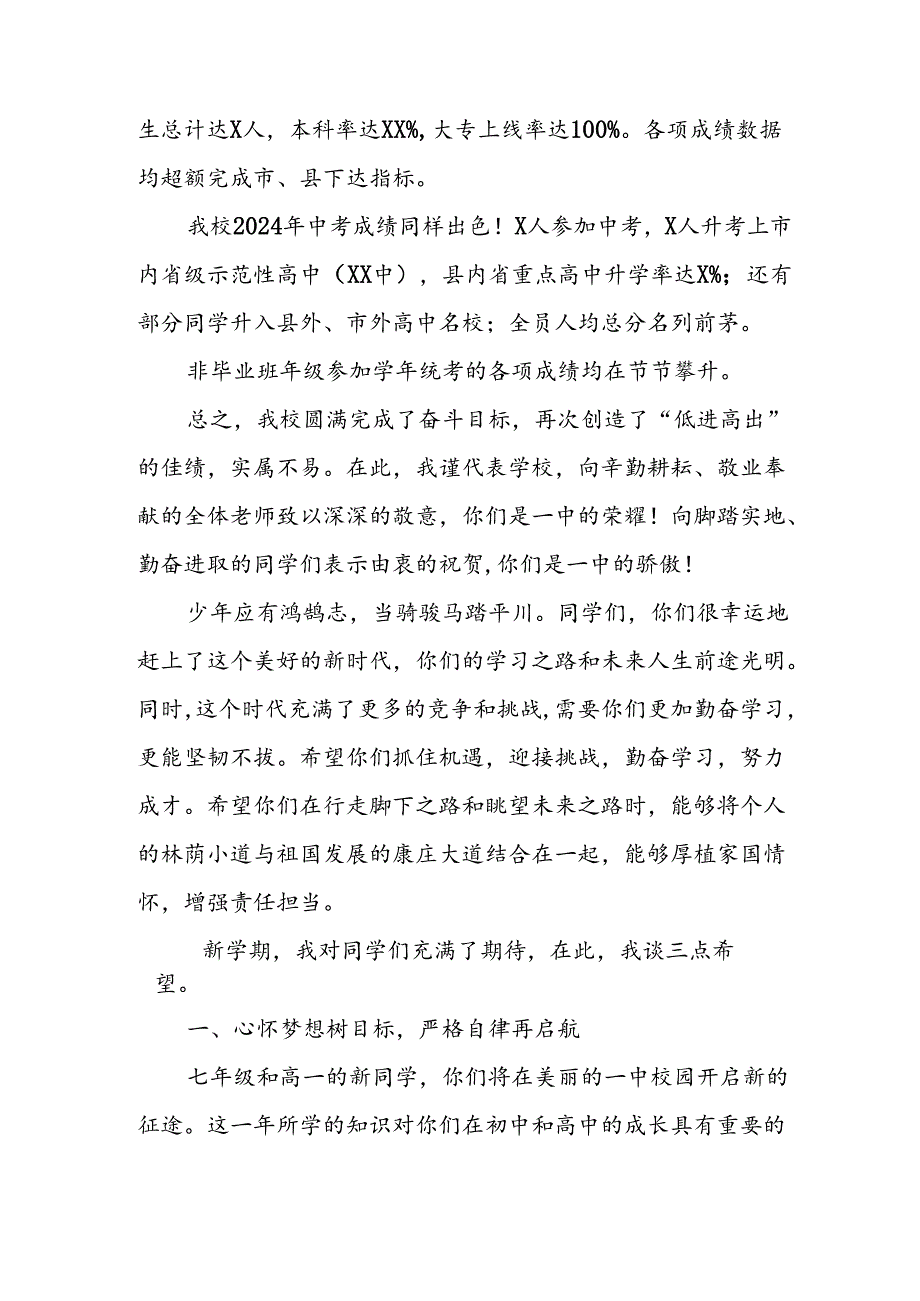 生总计达X人，本科率达XX%,大专上线率达100%。各项成绩数据
均超额完成市、县下达指标。
我校2024年中考成绩同样出色！X人参加中考，X人升考上市
内省级示范性高中（XX中），县内省重点高中升学率达X%；还有
部分同学升入县外、市外高中名校；全员人均总分名列前茅。
非毕业班年级参加学年统考的各项成绩均在节节攀升。
总之，我校圆满完成了奋斗目标，再次创造了“低进高出”
的佳绩，实属不易。在此，我谨代表学校，向辛勤耕耘、敬业奉
献的全体老师致以深深的敬意，你们是一中的荣耀！向脚踏实地、
勤奋进取的同学们表示由衷的祝贺,你们是一中的骄傲！
少年应有鸿鹄志，当骑骏马踏平川。同学们，你们很幸运地
赶上了这个美好的新时代，你们的学习之路和未来人生前途光明。
同时,这个时代充满了更多的竞争和挑战,需要你们更加勤奋学习，
更能坚韧不拔。希望你们抓住机遇，迎接挑战，勤奋学习，努力
成才。希望你们在行走脚下之路和眺望未来之路时，能够将个人
的林荫小道与祖国发展的康庄大道结合在一起，能够厚植家国情
怀，增强责任担当。
新学期，我对同学们充满了期待，在此，我谈三点希
望。
一、心怀梦想树目标，严格自律再启航
七年级和高一的新同学，你们将在美丽的一中校园开启新的
征途。这一年所学的知识对你们在初中和高中的成长具有重要的